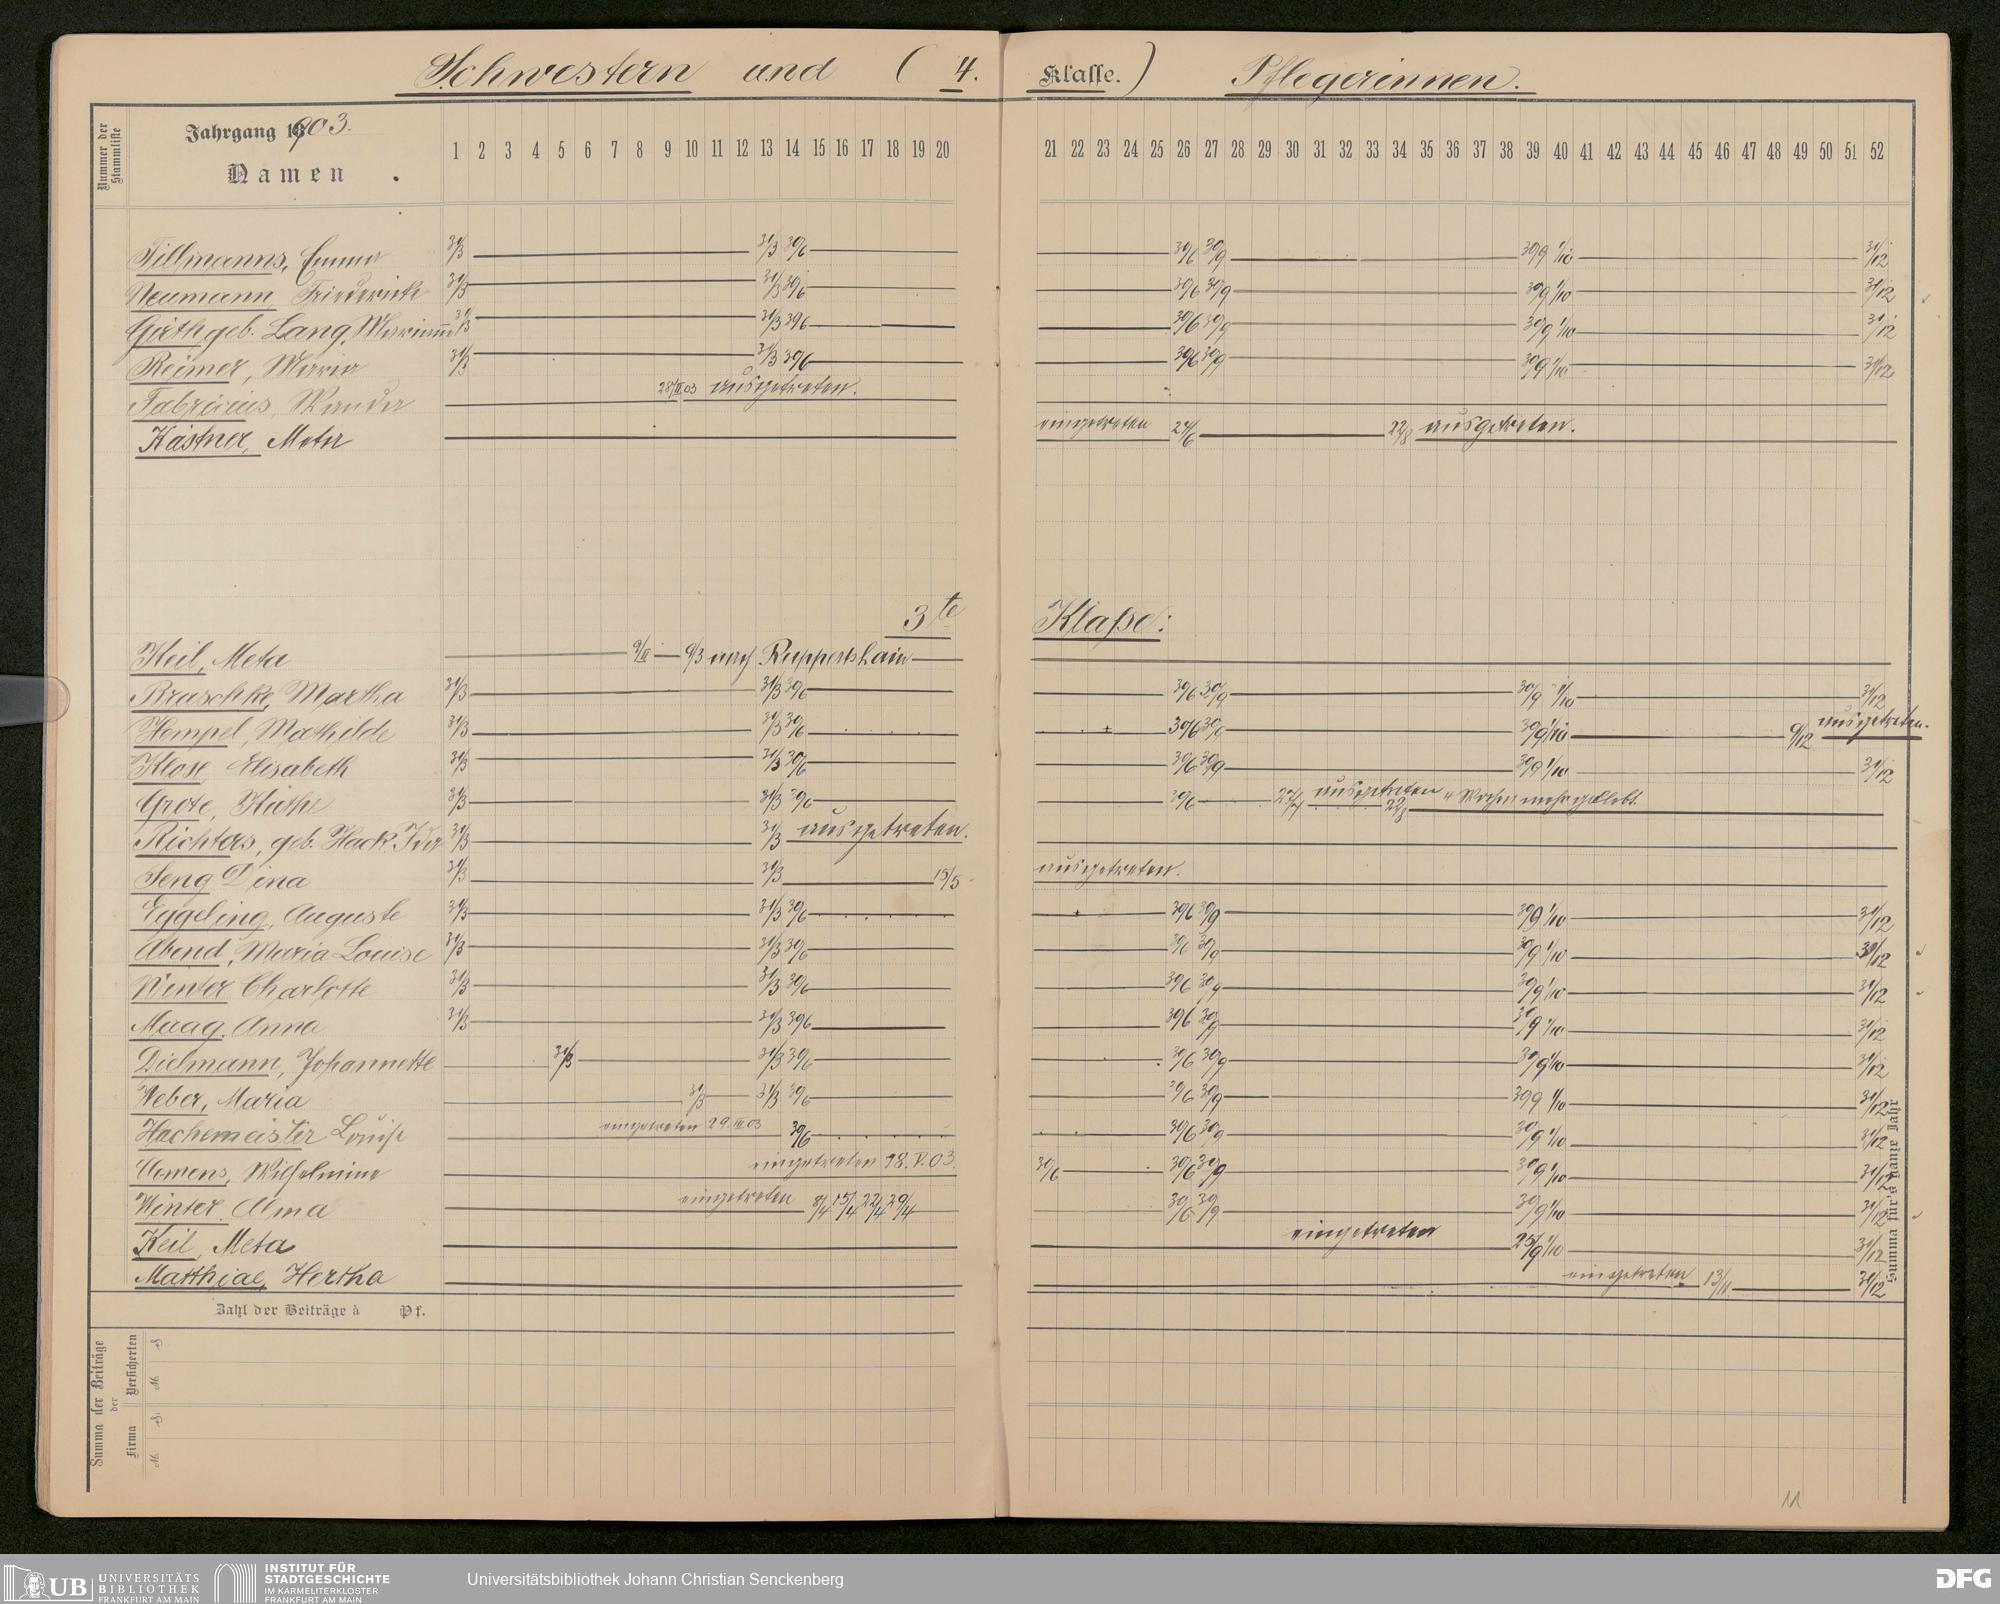 Schwestern und ( 4. Klasse. ) Pflegerinnen.
Nummer der Stammliste
Jahrgang 1903.
Namen
1 2 3 4 5 6 7 8 9 10 11 12 13 14 15 16 17 18 19 20 21 22 23 24 25 26 27 28 29 30 31 32 33 34 35 36 37 38 39 40 41 42 43 44 45 46 47 48 49 50 51 52
Tillmanns, Emma 31/3 31/3 30/6 30/6 30/9 30/9 1/10 31/12
Neumann, Friederike 31/3 31/3 30/6 30/6 30/9 30/9 1/10 31/12
Girth geb. Lang, 31/3 31/3 30/6 30/6 30/9 30/9 1/10 31/12
Reimer, Maria 31/3 31/3 30/6 30/6 30/9 30/9 1/10 31/12
Fabricius, Wanda ausgetreten.
Kästner, Meta eingetreten 24/6 22/8 ausgetreten.
3te Klaße:
Keil, Meta 9/3 nach Ruppertshain
Braschke, Martha 31/3 31/3 30/6 30/6 30/9 30/9 1/10 31/12
Hempel, Mathilde 31/3 31/3 30/6 30/6 30/9 30/9 1/10 9/12 ausgetreten.
Klose, Elisabeth 31/3 31/3 30/6 30/6 30/9 30/9 1/10 31/12
Grote, Käthe 31/3 31/3 30/6 30/6 ausgetreten 4 Wochen mehr geklebt.
Richters, geb. Hack, Ida 31/3 31/3 ausgetreten.
Seng Dina 31/3 31/3 15/5 ausgetreten.
Eggeling, Auguste 31/3 31/3 30/6 30/6 30/9 30/9 1/10 31/12
Abend, Maria Louise 31/3 31/3 30/6 30/6 30/9 30/9 1/10 31/12
Winter Charlotte 31/3 31/3 30/6 30/6 30/9 30/9 1/10 31/12
Maag, Anna 31/3 31/3 30/6 30/6 30/9 30/9 1/10 31/12
Dielmann, Johannette 31/3 31/3 30/6 30/6 30/9 30/9 1/10 31/12
Weber, Maria 31/3 31/3 30/6 30/6 30/9 30/9 1/10 31/12
Hachemeister Louise eingetreten 29.III 03 30/6 30/6 30/9 30/9 1/10 31/12
Clemens, Wilhelmine eingetreten 18.V.03. 30/6 30/6 30/9 30/9 1/10 31/12
Winter Alma eingetreten 8/4 15/4 22/4 29/4 30/6 30/9 30/9 1/10 31/12
Keil, Meta eingetreten 25/9 1/10 31/12
Matthiae, Hertha eingetreten 13/11. 31/12
Summa für's ganze Jahr
Zahl der Beiträge à Pf.
Summa der Beiträge
der
Versicherten
Firma
M. Pf.
M. Pf.
11
UB UNIVERSITÄTS
BIBLIOTHEK
FRANKFURT AM MAIN
INSTITUT FÜR
STADTGESCHICHTE
IM KARMELITERKLOSTER
FRANKFURT AM MAIN
Universitätsbibliothek Johann Christian Senckenberg
DFG